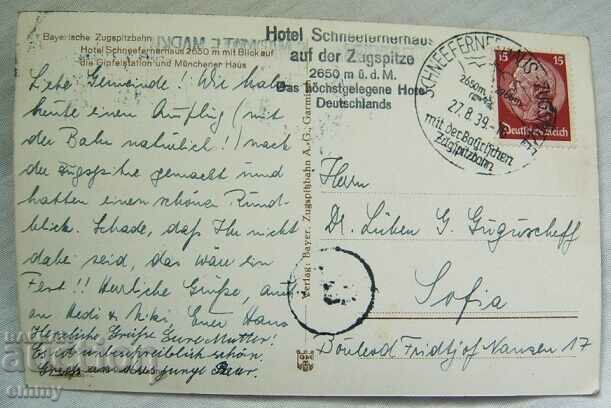 Bayerische Zugspitzbahn
Hotel Schneefernerhaus 2650 m mit Blick auf
die Gipfelstation und Münchener Haus
Hotel Schneefernerhaus
auf der Zugspitze
2650 m ü.d.M.
Das höchstgelegene Hotel
Deutschlands
SCHNEEFERNERHAUS-ZUGSPITZE
2650m
27.8.39
mit der Bayrischen
Zugspitzbahn
15 15
Deutsches Reich
Liebe Gemeinde! Wir haben
heute einen Ausflug (mit
der Bahn natürlich!) nach
der Zugspitze gemacht und
hatten einen schönen Rund-
blick. Schade, daß Ihr nicht
dabei seid, das wäre ein
Fest!! Herzliche Grüße, auch
an Hedi & Niki Euer Hans
Herzliche Grüße Eure Mutter!
Es ist unbeschreiblich schön.
Gruß an das junge Paar.
Verlag: Bayer. Zugspitzbahn A.-G., Garmisch
Herrn
Dr. Lüben G. Guguscheff
Sofia
Boulevod Fridtjof Nansen 17